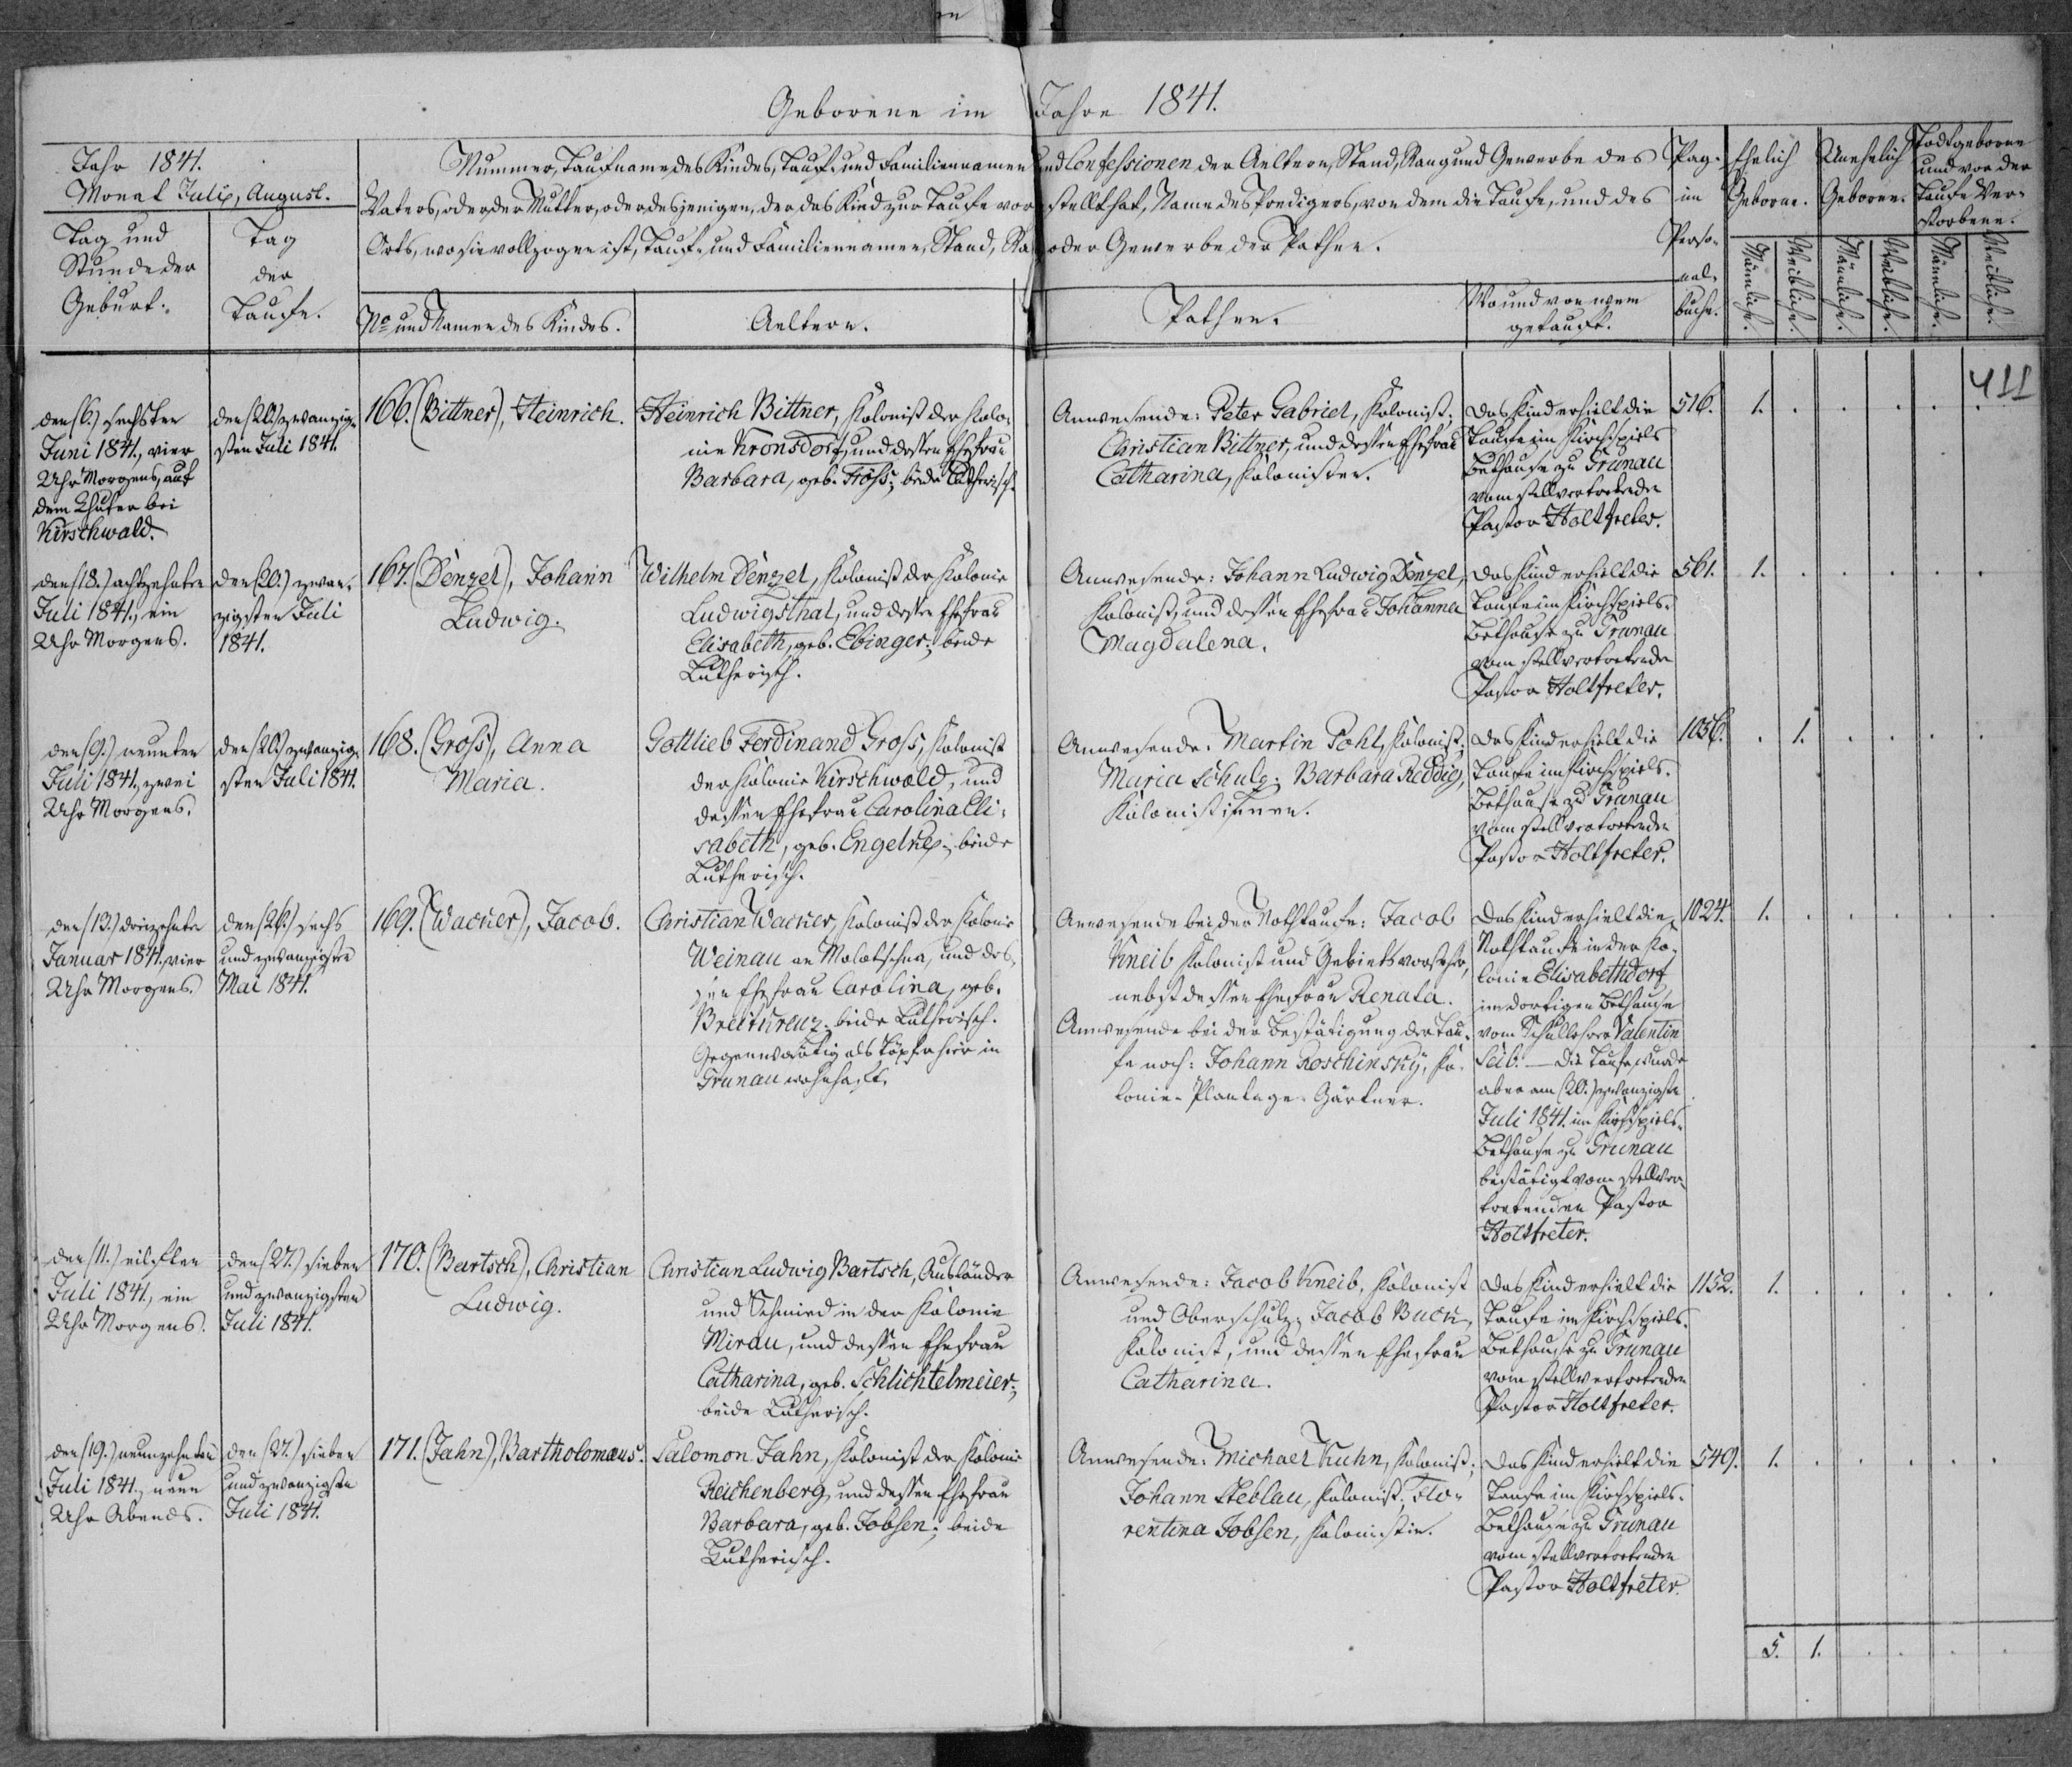 Geborene im Jahre 1841.
Jahr 1841.
Monat July, August.
Tag und
Stunde der
Geburt.
Tag
der
Taufe.
Nummer, Taufname des Kindes, Tauf- und Familiennamen und Confessionen der Aeltern, Stand, Rang und Gewerbe des
Vaters, oder der Mutter, oder desjenigen, der das Kind zur Taufe vorstellt hat, Name des Predigers, von dem die Taufe, und des
Orts, wo sie vollzogen ist, Tauf- und Familiennamen, Stand, oder Gewerbe der Pathen.
No und Namen des Kindes.
Aeltern.
Pathen.
Wo und von wem
getauft.
Pag.
im
Perso-
nal-
buche.
Ehelich
Geborne.
Unehelich
Geborene.
Todtgeborene
und vor der
Taufe Ver-
storbene.
Männliche.
Weibliche.
Männliche.
Weibliche.
Männliche.
Weibliche.
411
den (6.) sechsten
Juni 1841., vier
Uhr Morgens, auf
dem Chutor bei
Kirschwald.
den (20.) zwanzig-
sten Juli 1841.
166. (Bittner), Heinrich.
Heinrich Bittner, Kolonist der Kolo-
nie Kronsdorf, und dessen Ehefrau
Barbara, geb. Fröss; beide Lutherisch.
Anwesende: Peter Gabriel, Kolonist;
Christian Bittner, und dessen Ehefrau
Catharina, Kolonisten.
Das Kind erhielt die
Taufe im Kirchspiels
Bethause zu Grunau
vom stellvertretenden
Pastor Holtfreter.
516.
1.
den (18.) achtzehnten
Juli 1841., ein
Uhr Morgens.
den (20.) zwan-
zigsten Juli
1841.
167. (Denzel), Johann
Ludwig.
Wilhelm Denzel, Kolonist der Kolonie
Ludwigsthal, und dessen Ehefrau
Elisabeth, geb. Ebinger; beide
Lutherisch.
Anwesende: Johann Ludwig Denzel,
Kolonist, und dessen Ehefrau Johanna
Magdalena.
Das Kind erhielt die
Taufe im Kirchspiels-
Bethause zu Grunau
vom stellvertretenden
Pastor Holtfreter.
561.
1.
den (9.) neunten
Juli 1841., zwei
Uhr Morgens.
den (20.) zwanzig-
sten Juli 1841.
168. (Gross), Anna
Maria.
Gottlieb Ferdinand Gross, Kolonist
der Kolonie Kirschwald, und
dessen Ehefrau Carolina Eli-
sabeth, geb. Engelke; beide
Lutherisch.
Anwesende: Martin Pohl, Kolonist;
Maria Schulz; Barbara Reddig,
Kolonistinnen.
Das Kind erhielt die
Taufe im Kirchspiels-
Bethause zu Grunau
vom stellvertretenden
Pastor Holtfreter.
1056.
1.
den (13.) dreizehnten
Januar 1841., vier
Uhr Morgens.
den (26.) sechs
und zwanzigsten
Mai 1841.
169. (Wacker), Jacob.
Christian Wacker, Kolonist der Kolonie
Weinau an Molotschna, und des-
sen Ehefrau Carolina, geb.
Breitkreuz; beide Lutherisch.
Gegenwärtig als Töpfer hier in
Grunau wohnhaft.
Anwesende bei der Nothtaufe: Jacob
Kneib Kolonist und Gebietsvorsteher,
nebst dessen Ehefrau Renata.
Anwesende bei der Bestätigung der Tau-
fe noch: Johann Roschinsky, Ko-
lonie-Plantage-Gärtner.
Das Kind erhielt die
Nothtaufe in der Ko-
lonie Elisabethdorf
im dortigen Bethause
vom Schullehrer Valentin
Seib. — Die Taufe wurde
aber am (20.) zwanzigsten
Juli 1841. im Kirchspiels-
Bethause zu Grunau
bestätigt vom stellver-
tretenden Pastor
Holtfreter.
1024.
1.
den (11.) eilften
Juli 1841., ein
Uhr Morgens.
den (27.) sieben
und zwanzigsten
Juli 1841.
170. (Bartsch), Christian
Ludwig.
Christian Ludwig Bartsch, Ausländer
und Schmied in der Kolonie
Mirau, und dessen Ehefrau
Catharina, geb. Schlichtelmeier;
beide Lutherisch.
Anwesende: Jacob Kneib, Kolonist
und Oberschulz; Jacob Buck,
Kolonist, und dessen Ehefrau
Catharina.
Das Kind erhielt die
Taufe im Kirchspiels-
Bethause zu Grunau
vom stellvertretenden
Pastor Holtfreter.
1152.
1.
den (19.) neunzehnten
Juli 1841., neun
Uhr Abends.
den (27.) sieben
und zwanzigsten
Juli 1841.
171. (Jahn), Bartholomäus.
Salomon Jahn, Kolonist der Kolonie
Reichenberg, und dessen Ehefrau
Barbara, geb. Jobsen; beide
Lutherisch.
Anwesende: Michael Kuhn, Kolonist;
Johann Steblau, Kolonist; Flo-
rentina Jobsen, Kolonistin.
Das Kind erhielt die
Taufe im Kirchspiels-
Bethause zu Grunau
vom stellvertretenden
Pastor Holtfreter.
549.
1.
5. 1.